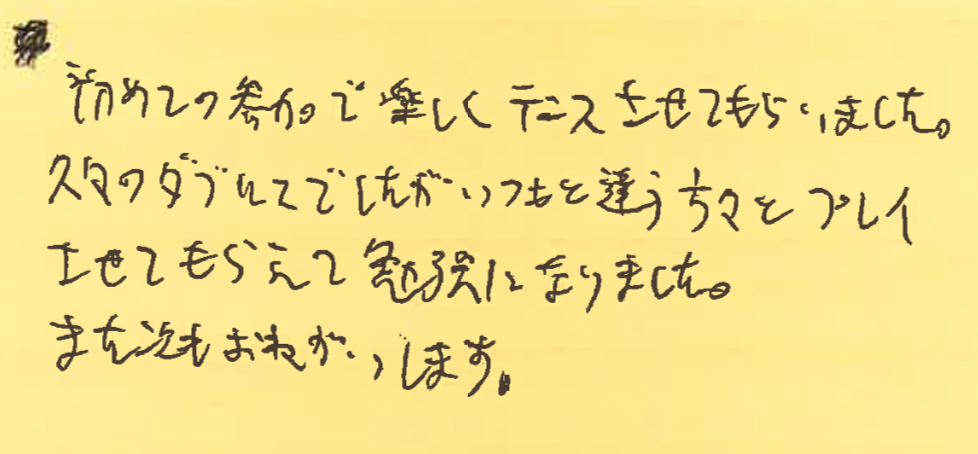 初めての参加で楽しくテニスさせてもらいました。
スタのダブルスでしたがいつもと違う方々とプレイ
させてもらえて勉強になりました。
また次もおねがいします。